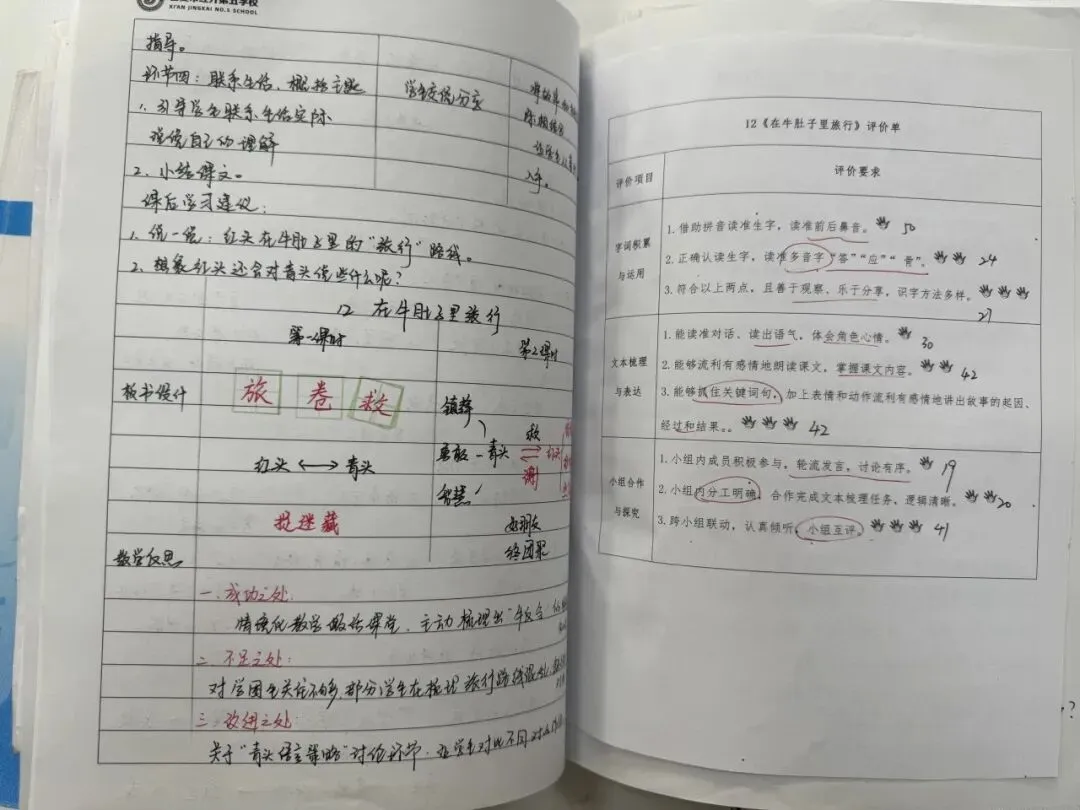 XI'AN JINGKAI NO.5 SCHOOL
指导。
环节四：联系生活，概括主题
学生交流分享
1. 引导学生联系生活实际
说说自己的理解
2. 小结课文。
课后学习建议：
1. 说一说：红头在牛肚子里的“旅行”路线。
2. 想象红头还会对青头说些什么呢？
12 在牛肚子里旅行
第一课时
第2课时
板书设计
旅 卷 救
镇静
勇敢 — 青头 救 红头
谢
智慧
红头 ⟷ 青头
捉迷藏
好朋友
终团聚
教学反思
一. 成功之处：
情境化教学激活课堂，主动梳理出“牛反刍
二. 不足之处：
对学困生关注不够，部分学生在梳理旅行路线
三. 改进之处：
关于“青头语言策略”讨论环节，
12《在牛肚子里旅行》评价单
评价项目
评价要求
字词积累
与运用
1. 借助拼音读准生字，读准前后鼻音。 50
2. 正确认读生字，读准多音字“答”“应”“骨”。 24
3. 符合以上两点，且善于观察、乐于分享，识字方法多样。
27
文本梳理
与表达
1. 能读准对话、读出语气，体会角色心情。 30
2. 能够流利有感情地朗读课文，掌握课文内容。 42
3. 能够抓住关键词句，加上表情和动作流利有感情地讲出故事的起因、
经过和结果。。 42
小组合作
与探究
1. 小组内成员积极参与，轮流发言，讨论有序。 19
2. 小组内分工明确，合作完成文本梳理任务、逻辑清晰。 20
3. 跨小组联动，认真倾听，小组互评。 41